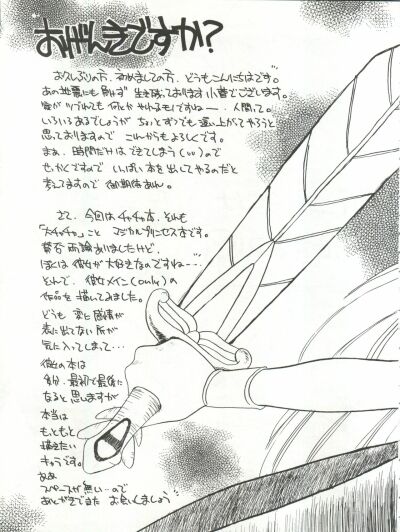 おげんきですか?
お久しぶりの方、初めましての方、どうもこんにちはです。
あの地震にも負けず 生き残っております小菅でございます。
家がつぶれても何とかやれるモノですねー、人間って。
いろいろあるでしょうが ちょっとずつでも這い上がってやろうと
思っておりますので これからもよろしくです。
まぁ、時間だけはできてしまう(いい)ので
せっかくですので いっぱい本を出してやるのだと
考えてますので 御期待あれ。
さて、今回はチャチャ本、それも
「大チャチャ」こと マジカルプリンセス本です。
賛否両論ありましたけど、
ぼくは彼女が大好きなのですね…
とんで、彼女メイン(only)の
作品を描いてみました。
どうも 変に感情が
表に出てない所が
気に入ってしまって…
彼女の本は
多分、最初で最後に
なると思いますが
本当は
もっともっと
描きたい
キャラです。
ああ
スペースが無い…ので
あとがきでまた お会いしましょう